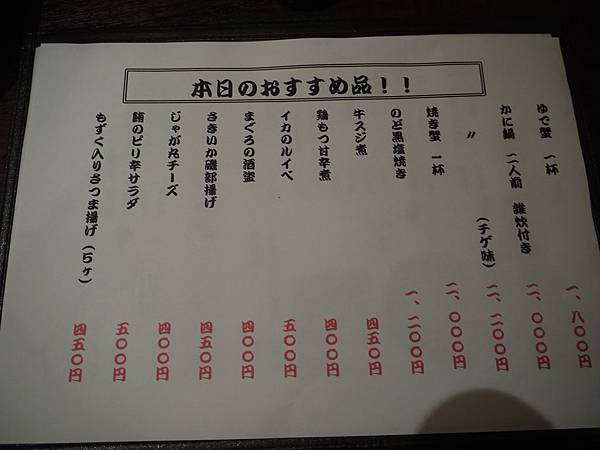 本日のおすすめ品！！
ゆで蟹 一杯 一、八〇〇円
かに鍋 二人前 雑炊付き 二、〇〇〇円
〃 （チゲ味） 二、二〇〇円
焼き蟹 一杯 二、〇〇〇円
のど黒塩焼き 一、二〇〇円
牛スジ煮 四五〇円
鶏もつ甘辛煮 四〇〇円
イカのルイベ 五〇〇円
まぐろの酒盗 四〇〇円
さきいか磯部揚げ 四五〇円
じゃが丸チーズ 四〇〇円
鮪のピリ辛サラダ 五〇〇円
もずく入りさつま揚げ（５ヶ） 四五〇円